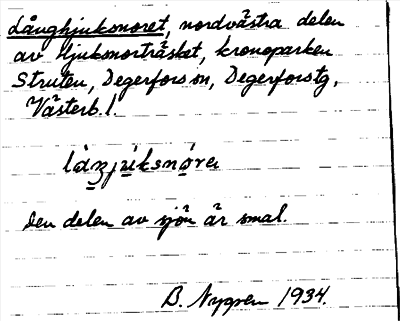 Långhjuksnoret, nordvästra delen
av Hjuksnorträsket, kronoparken
Struten, Degerfors sn, Degerforstg,
Västerb. l.
Den delen av sjön är smal.
B. Nygren 1934.